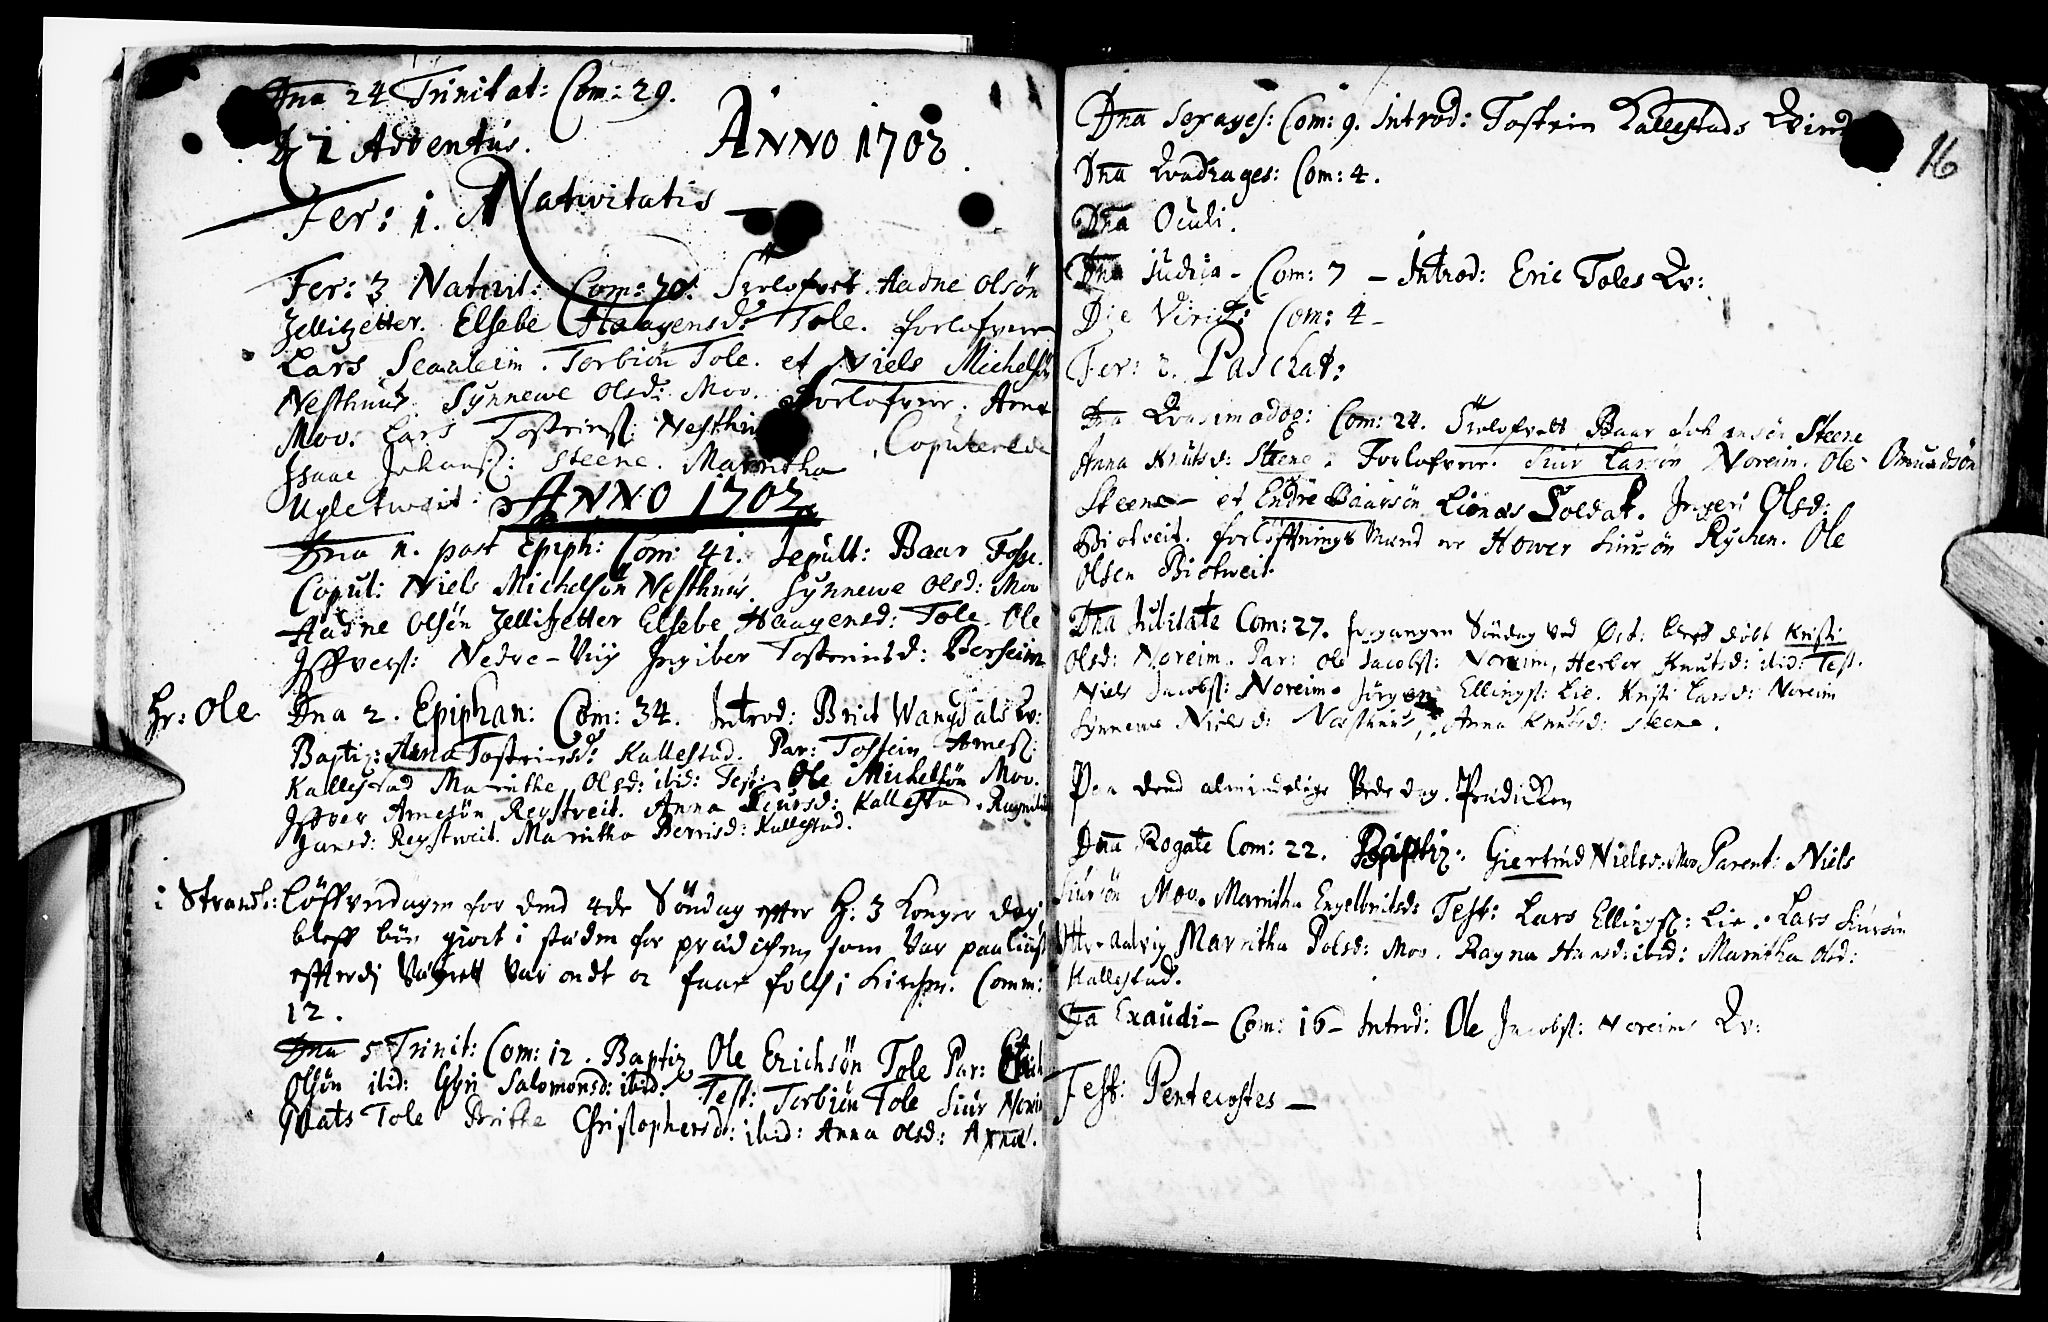 Dna 24 Trinitat: Com: 29.
D 1 Adventus. ANNO 1702
Fer: 1. Nativitatis
Fer: 3 Nativit: Com: 70: Trolofvet Aadne Olsøn
Zellitzetter. Elsebe Haagensd: Tole. forlofvere
Lars Seaaleim. Torbiøn Tole. et Niels Michelsøn
Nesthuus. Synnewe Olsd: Mov. Forlofvere. Arne
Mov. Lars Tosteins: Nesthu
Copulerede
Isaac Johans: Steene. Marritha
Ugletweit:
ANNO 1702
Dna 1. post Epiph: Com: 41. Sepult: Baar Fosse.
Copul: Niels Michelsøn Nesthuus. Synnewe Olsd: Mov
Aadne Olsøn Zellitzetter Elsebe Haagensd: Tole. Ole
Iffvers: Nedre-Viig Ingibor Tosteinsd: Berseim
Hr: Ole Dna 2. Epiphan: Com: 34. Introd: Brit Wangdals Qv:
Baptiz: Anna Tosteinsd: Kallestad. Par: Tostein Arnes:
Kallestad Maritthe Olsd: ibid: Test: Ole Michelsøn Mov.
Iffver Arnesøn Reystveit. Anna Siursd: Kallestad. Ragnilda
Jansd: Reystweit. Maritha Berrisd: Kallestad.
i Strandb: Løffverdagen for dend 4de Søndag effter H: 3 Konger dag
bleff bøn giort i stæden for prædichen, som var paa liust
effterdj Væyret var ondt oc faae folch i Kirchen. Comm:
12.
Dna 5 Trinit: Com: 12. Baptiz Ole Erichsøn Tole Par: Erich
Olsøn ibid: Gyri Salomonsd: ibid: Test: Torbiøn Tole Siur Noreim
Mats Tole Britthe Christophersd: ibid: Anna Olsd: Axnæ.
16
Dna Sexages: Com: 9. Introd: Tostein Kallestads Qvind
Dna Qvadrages: Com: 4.
Dna Oculi.
Dna Judica - Com: 7 - Introd: Eric Toles Qv:
Die Virid: Com: 4 -
Fer: 2. Paschat:
Dna Qvasimodog: Com: 24. Trolofvett Baar Johansøn Steene
Anna Knutsd: Steene. Forlofvere. Siur Larsøn Noreim. Ole Omundsøn
Steene - et Endre Baarsøn Lionæs Soldat. Ingeri Olsd:
Biotveit. forlöffnings Mænd er Hower Siursøn Rychen. Ole
Olsen Biotweit.
Dna Jubilate Com: 27. forgangen Søndag ved Øst: bleff døbt Kristi
Olsd: Noreim. Par: Ole Jacobs: Noreim, Herbor Knutsd: ibid: Test.
Niels Jacobs: Noreim. Jørgen Ellings: Lie. Kristi Larsd: Noreim
Synnewe Nielsd: Nesthuus, Anna Knutsd: Steene.
Paa dend almindelige Bede dag. Prædicken
Dna Rogate Com: 22. Baptiz: Giertrud Nielsd: Mov Parent: Niels
Siursøn Mov. Marritha Engelbritsd: Test: Lars Ellings: Lie. Lars Siursøn
Ytre-Aalvig Marritha Polsd: Mov. Ragna Hansd: ibid: Maritha Olsd:
Kallestad.
Dna Exaudi - Com: 16 - Introd: Ole Jacobs: Noreims Qv:
Fest: Pentecostes -